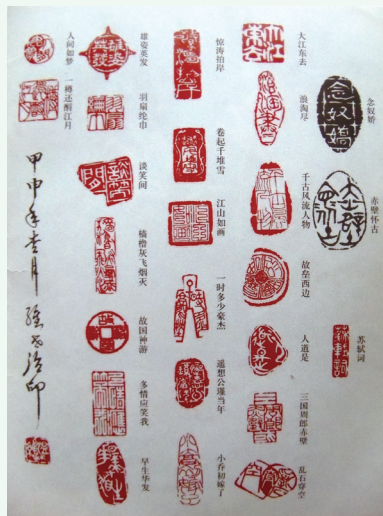 念奴娇
赤壁怀古
苏轼词
大江东去
浪淘尽
千古风流人物
故垒西边
人道是
三国周郎赤壁
乱石穿空
惊涛拍岸
卷起千堆雪
江山如画
一时多少豪杰
遥想公瑾当年
小乔初嫁了
雄姿英发
羽扇纶巾
谈笑间
樯橹灰飞烟灭
故国神游
多情应笑我
早生华发
人间如梦
一樽还酹江月
甲申年 月 治印